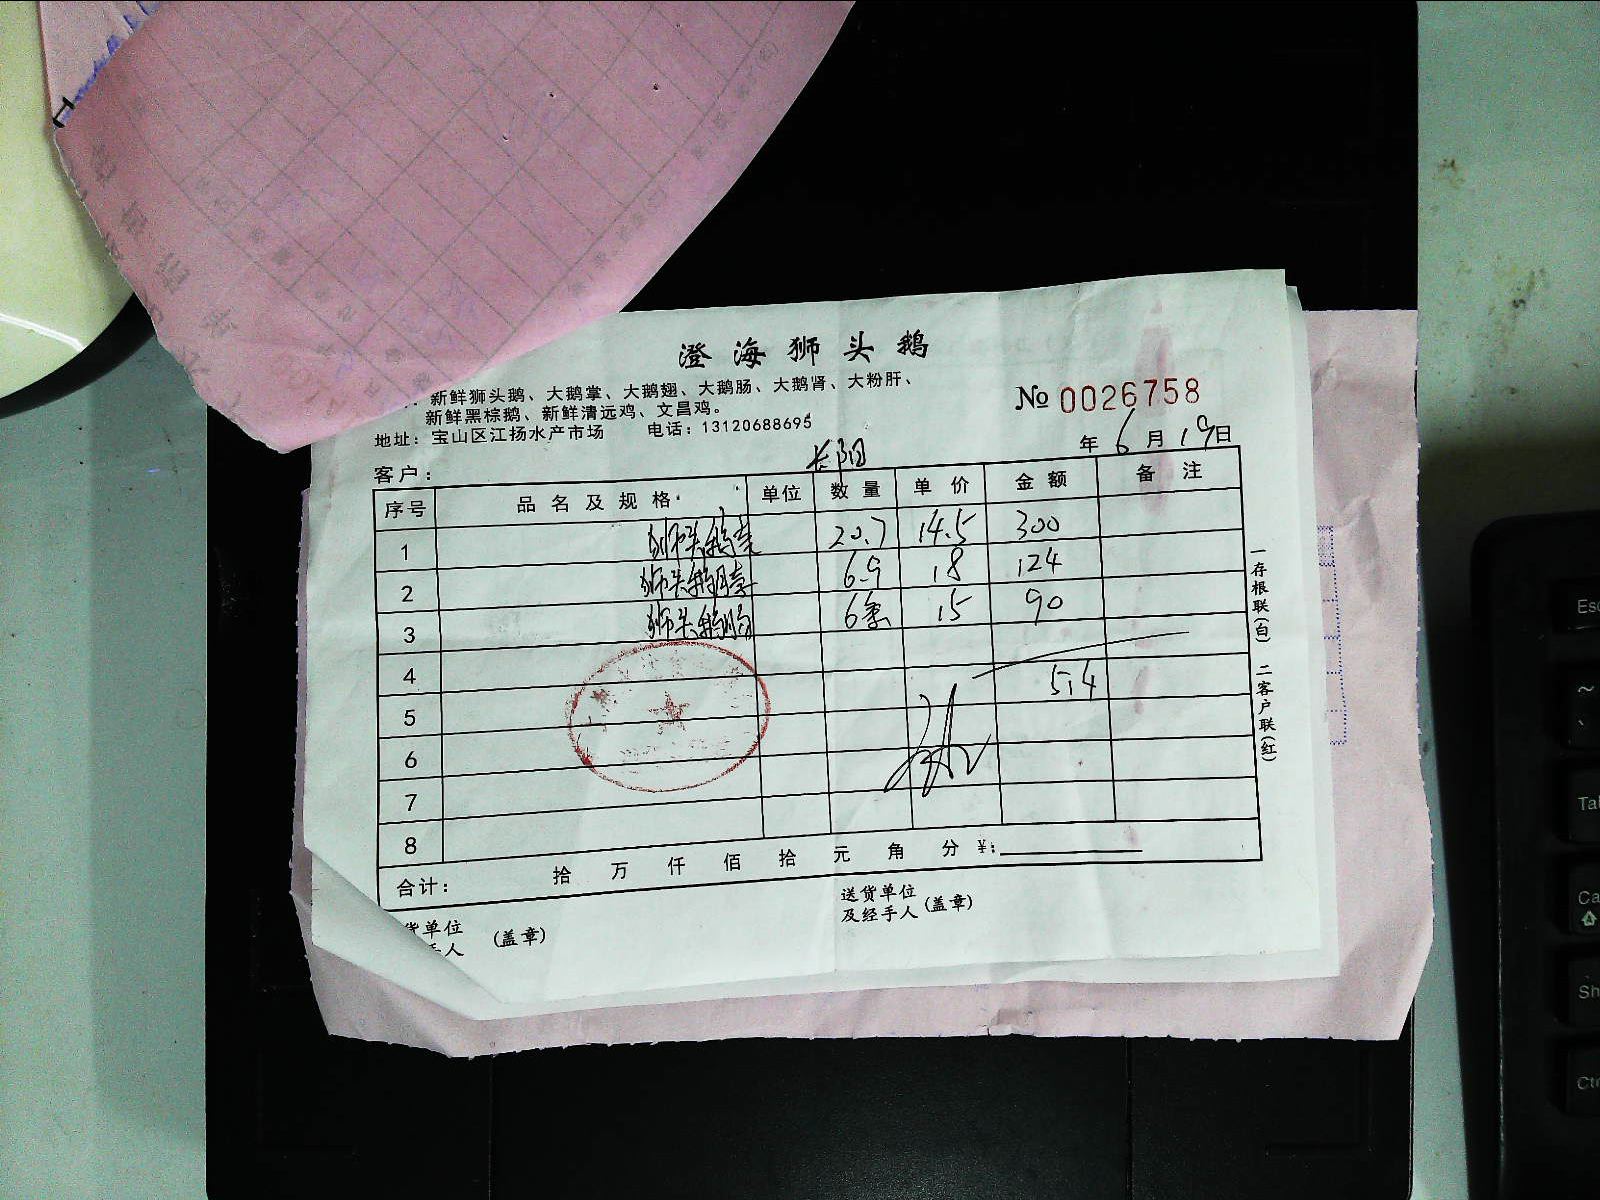 澄海狮头鹅
新鲜狮头鹅、大鹅掌、大鹅翅、大鹅肠、大鹅肾、大粉肝、
新鲜黑棕鹅、新鲜清远鸡、文昌鸡。
№ 0026758
地址：宝山区江扬水产市场 电话：13120688695
年 6 月 19 日
客户： 长阳
序号 品名及规格 单位 数量 单价 金额 备注
1 狮头鹅 20.7 14.5 300
2 狮头鹅 6.9 18 124
3 狮头鹅肠 6 15 90
4
514
5
6
7
8
合计： 拾 万 仟 佰 拾 元 角 分 ¥：
货单位
手人 (盖章)
送货单位
及经手人 (盖章)
一存根联(白) 二客户联(红)
Esc
~
Tab
Ca
Sh
Ctr